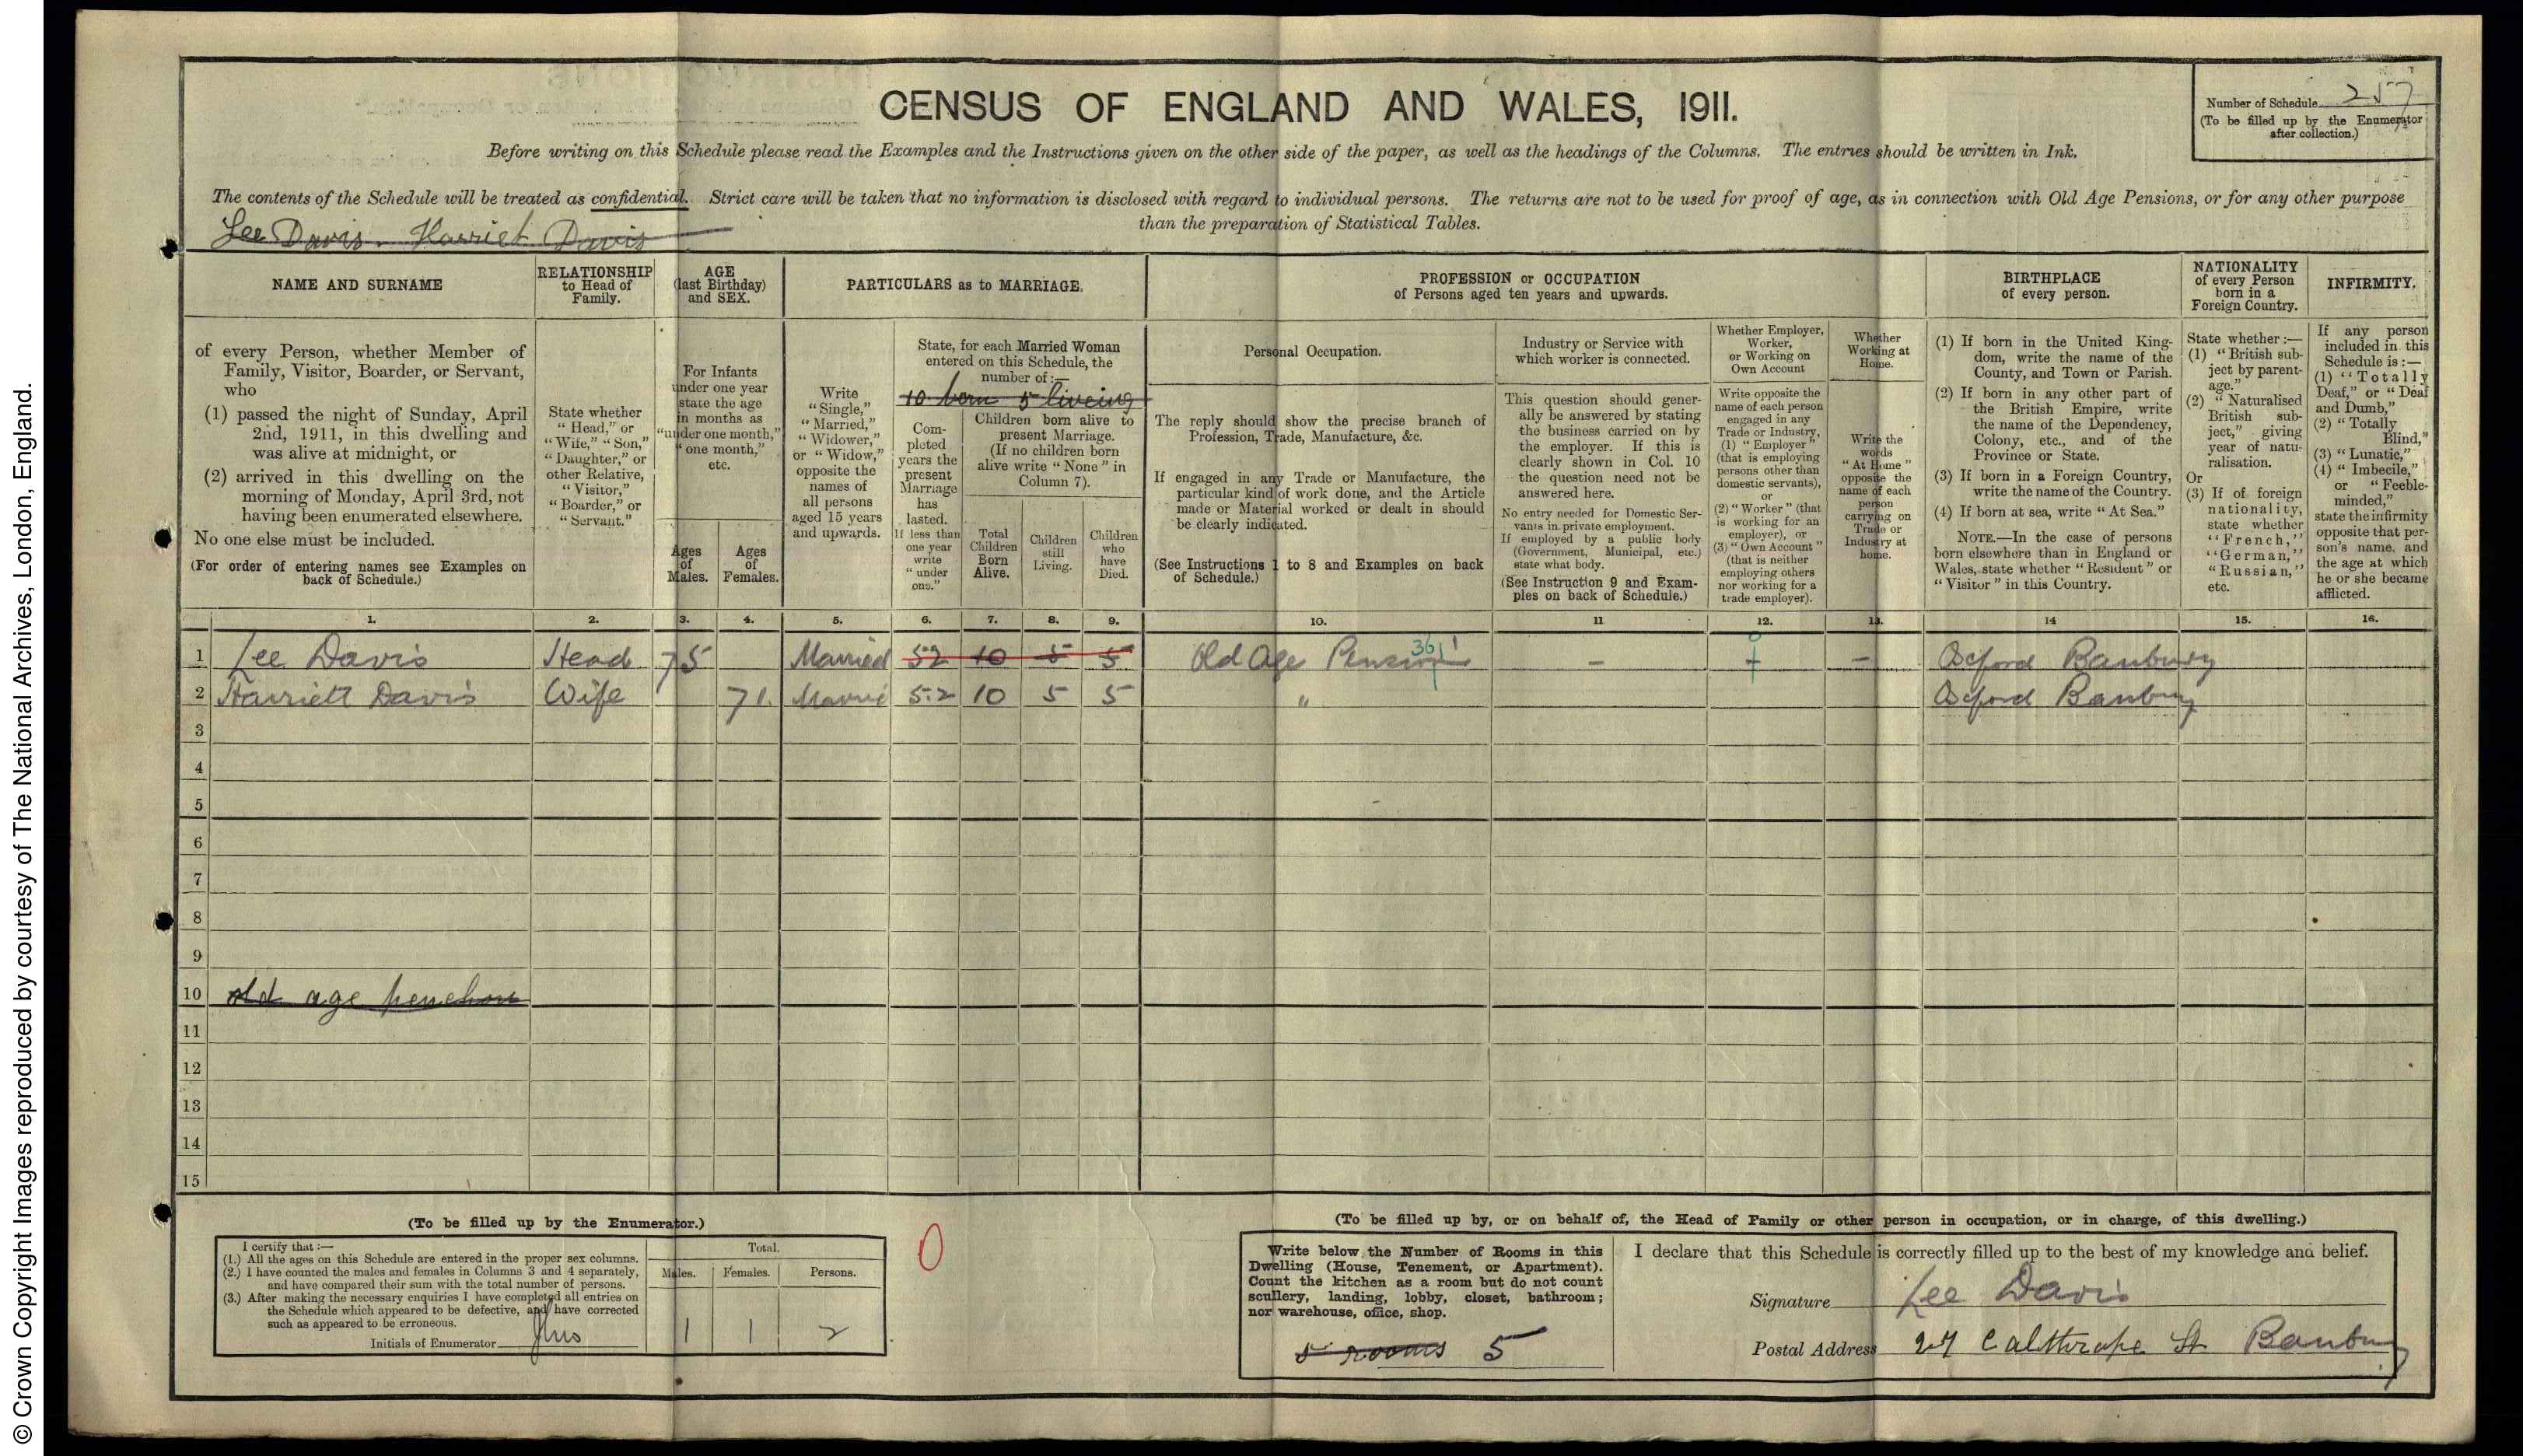 © Crown Copyright Images reproduced by courtesy of The National Archives, London, England.
CENSUS OF ENGLAND AND WALES, 1911.
Number of Schedule 257
(To be filled up by the Enumerator
after collection.)
Before writing on this Schedule please read the Examples and the Instructions given on the other side of the paper, as well as the headings of the Columns. The entries should be written in Ink.
The contents of the Schedule will be treated as confidential. Strict care will be taken that no information is disclosed with regard to individual persons. The returns are not to be used for proof of age, as in connection with Old Age Pensions, or for any other purpose
than the preparation of Statistical Tables.
Lee Davis. Harriet Davis
NAME AND SURNAME
of every Person, whether Member of
Family, Visitor, Boarder, or Servant,
who
(1) passed the night of Sunday, April
2nd, 1911, in this dwelling and
was alive at midnight, or
(2) arrived in this dwelling on the
morning of Monday, April 3rd, not
having been enumerated elsewhere.
No one else must be included.
(For order of entering names see Examples on
back of Schedule.)
RELATIONSHIP
to Head of
Family.
State whether
"Head," or
"Wife," "Son,"
"Daughter," or
other Relative,
"Visitor,"
"Boarder," or
"Servant."
AGE
(last Birthday)
and SEX.
For Infants
under one year
state the age
in months as
"under one month,"
"one month,"
etc.
Ages
of
Males.
Ages
of
Females.
PARTICULARS as to MARRIAGE.
Write
"Single,"
"Married,"
"Widower,"
or "Widow,"
opposite the
names of
all persons
aged 15 years
and upwards.
State, for each Married Woman
entered on this Schedule, the
number of :—
10 born 5 liveing
Com-
pleted
years the
present
Marriage
has
lasted.
If less than
one year
write
"under
one."
Children born alive to
present Marriage.
(If no children born
alive write "None" in
Column 7).
Total
Children
Born
Alive.
Children
still
Living.
Children
who
have
Died.
PROFESSION or OCCUPATION
of Persons aged ten years and upwards.
Personal Occupation.
The reply should show the precise branch of
Profession, Trade, Manufacture, &c.
If engaged in any Trade or Manufacture, the
particular kind of work done, and the Article
made or Material worked or dealt in should
be clearly indicated.
(See Instructions 1 to 8 and Examples on back
of Schedule.)
Industry or Service with
which worker is connected.
This question should gener-
ally be answered by stating
the business carried on by
the employer. If this is
clearly shown in Col. 10
the question need not be
answered here.
No entry needed for Domestic Ser-
vants in private employment.
If employed by a public body
(Government, Municipal, etc.)
state what body.
(See Instruction 9 and Exam-
ples on back of Schedule.)
Whether Employer,
Worker,
or Working on
Own Account
Write opposite the
name of each person
engaged in any
Trade or Industry,
(1) "Employer"
(that is employing
persons other than
domestic servants),
or
(2) "Worker" (that
is working for an
employer), or
(3) "Own Account"
(that is neither
employing others
nor working for a
trade employer).
Whether
Working at
Home.
Write the
words
"At Home"
opposite the
name of each
person
carrying on
Trade or
Industry at
home.
BIRTHPLACE
of every person.
(1) If born in the United King-
dom, write the name of the
County, and Town or Parish.
(2) If born in any other part of
the British Empire, write
the name of the Dependency,
Colony, etc., and of the
Province or State.
(3) If born in a Foreign Country,
write the name of the Country.
(4) If born at sea, write "At Sea."
NOTE.—In the case of persons
born elsewhere than in England or
Wales, state whether "Resident" or
"Visitor" in this Country.
NATIONALITY
of every Person
born in a
Foreign Country.
State whether :—
(1) "British sub-
ject by parent-
age."
(2) "Naturalised
British sub-
ject," giving
year of natu-
ralisation.
Or
(3) If of foreign
nationality,
state whether
"French,"
"German,"
"Russian,"
etc.
INFIRMITY.
If any person
included in this
Schedule is :—
(1) "Totally
Deaf," or "Deaf
and Dumb,"
(2) "Totally
Blind,"
(3) "Lunatic,"
(4) "Imbecile,"
or "Feeble-
minded,"
state the infirmity
opposite that per-
son's name, and
the age at which
he or she became
afflicted.
1. 2. 3. 4. 5. 6. 7. 8. 9. 10. 11 12. 13. 14 15. 16.
1 Lee Davis Head 75 Married 52 10 5 5 Old Age Pension 361 — — — Oxford Banbury
2 Harriett Davis Wife 71. Married 52 10 5 5 " Oxford Banbury
3
4
5
6
7
8
9
10 old age penchon
11
12
13
14
15
(To be filled up by the Enumerator.)
I certify that :—
(1.) All the ages on this Schedule are entered in the proper sex columns.
(2.) I have counted the males and females in Columns 3 and 4 separately,
and have compared their sum with the total number of persons.
(3.) After making the necessary enquiries I have completed all entries on
the Schedule which appeared to be defective, and have corrected
such as appeared to be erroneous.
Initials of Enumerator
Total.
Males. Females. Persons.
1 1 2
0
(To be filled up by, or on behalf of, the Head of Family or other person in occupation, or in charge, of this dwelling.)
Write below the Number of Rooms in this
Dwelling (House, Tenement, or Apartment).
Count the kitchen as a room but do not count
scullery, landing, lobby, closet, bathroom;
nor warehouse, office, shop.
5 rooms 5
I declare that this Schedule is correctly filled up to the best of my knowledge and belief.
Signature Lee Davis
Postal Address 27 Calthrope St Banbury